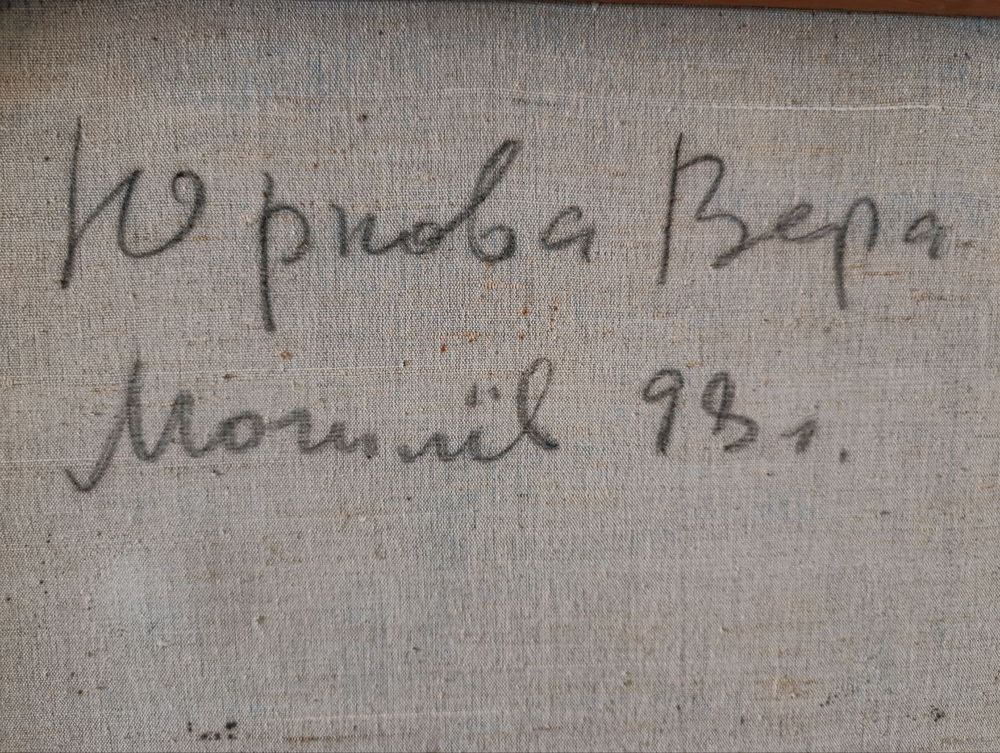 Юркова Вера
Могилёв 98г.